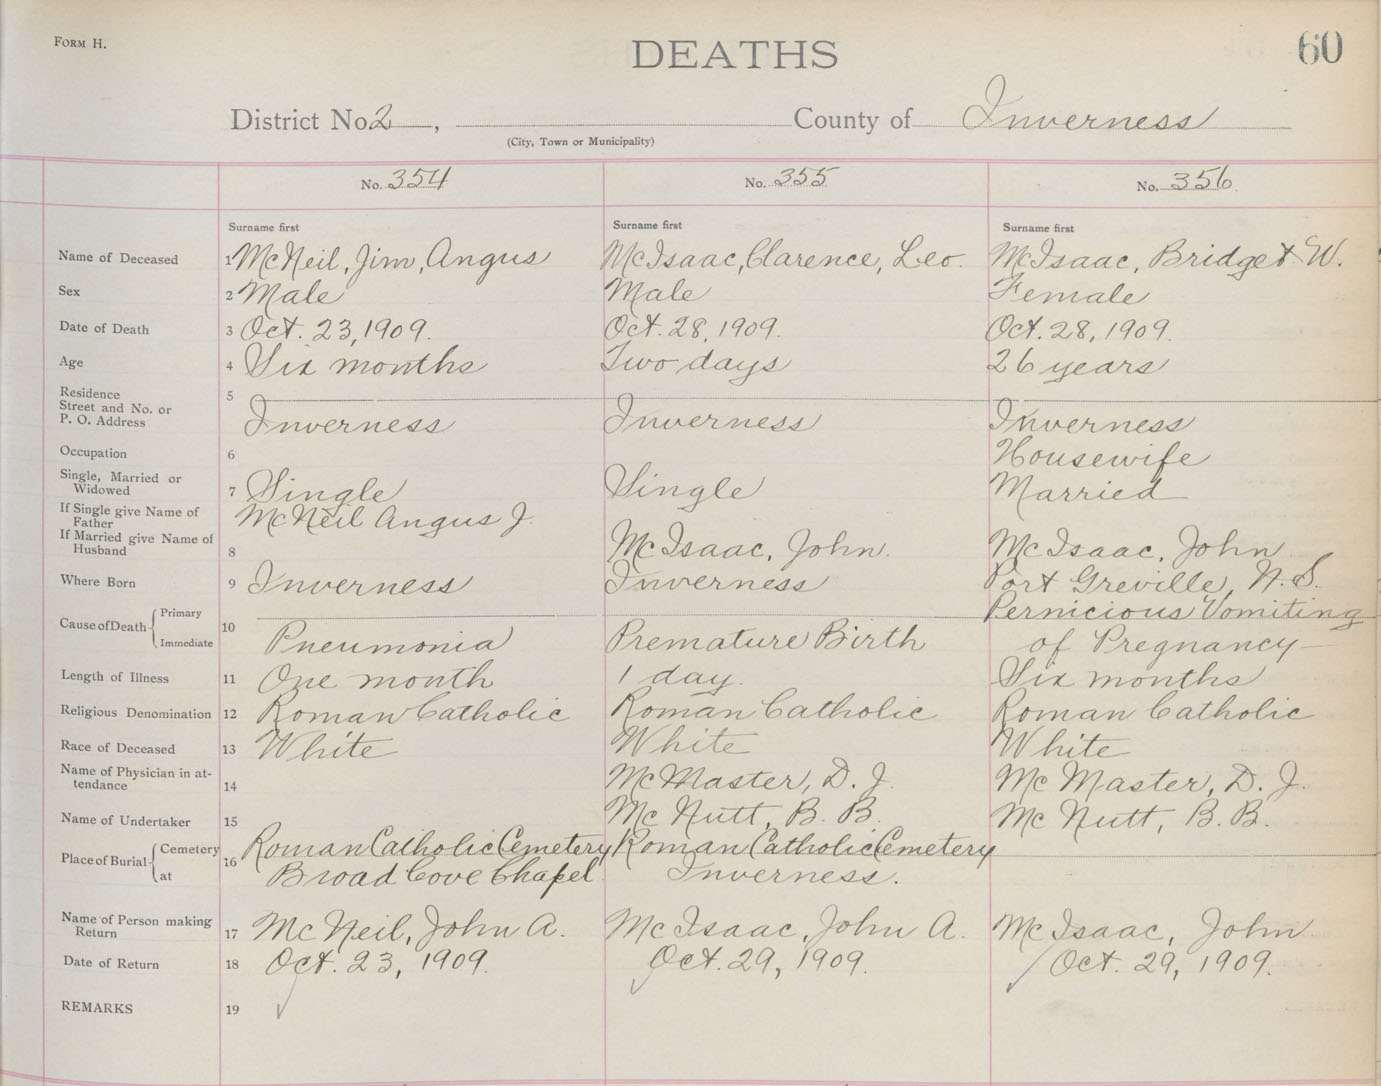 FORM H.
DEATHS
60
District No. 2, County of Inverness
(City, Town or Municipality)
No. 354 No. 355 No. 356
Surname first Surname first Surname first
Name of Deceased 1 McNeil, Jim, Angus McIsaac, Clarence, Leo. McIsaac, Bridget W.
Sex 2 Male Male Female
Date of Death 3 Oct. 23, 1909. Oct. 28, 1909. Oct. 28, 1909.
Age 4 Six months Two days 26 years
Residence 5
Street and No. or
P. O. Address Inverness Inverness Inverness
Occupation 6 Housewife
Single, Married or
Widowed 7 Single Single Married
If Single give Name of
Father McNeil Angus J.
If Married give Name of
Husband 8 McIsaac, John. McIsaac, John
Where Born 9 Inverness Inverness Port Greville, N.S.
Cause of Death Primary 10 Pernicious Vomiting
Immediate Pneumonia Premature Birth of Pregnancy
Length of Illness 11 One month 1 day. Six months
Religious Denomination 12 Roman Catholic Roman Catholic Roman Catholic
Race of Deceased 13 White White White
Name of Physician in at-
tendance 14 McMaster, D. J. McMaster, D. J.
Name of Undertaker 15 McNutt, B. B. McNutt, B. B.
Place of Burial Cemetery 16 Roman Catholic Cemetery Roman Catholic Cemetery
at Broad Cove Chapel Inverness.
Name of Person making
Return 17 McNeil, John A. McIsaac, John A. McIsaac, John
Date of Return 18 Oct. 23, 1909. Oct. 29, 1909. Oct. 29, 1909.
REMARKS 19